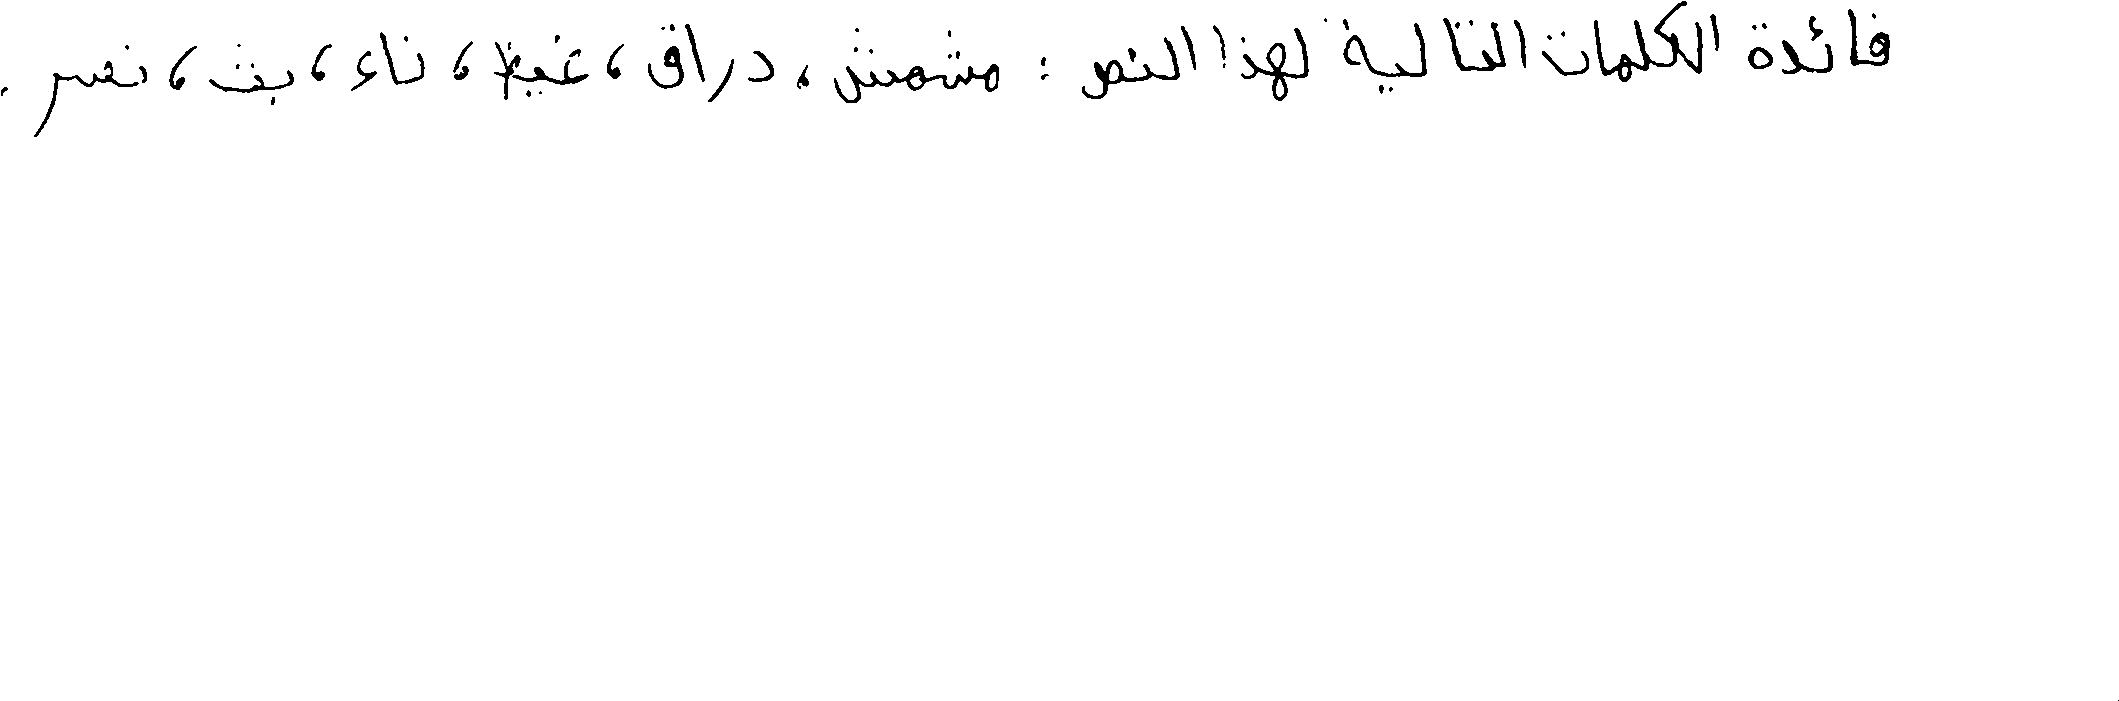 فائدة الكلمات التالية لهذا النص : مشمش، دراق، غيظ، ناء، بث، نسر.